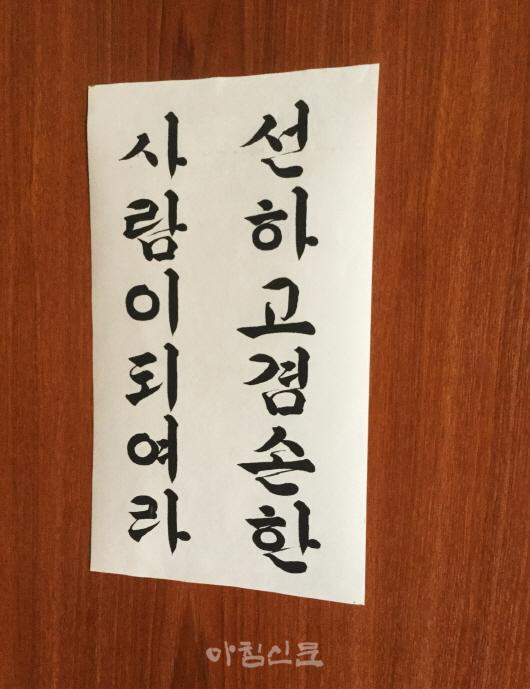 선하고겸손한
사람이되여라
아침신문